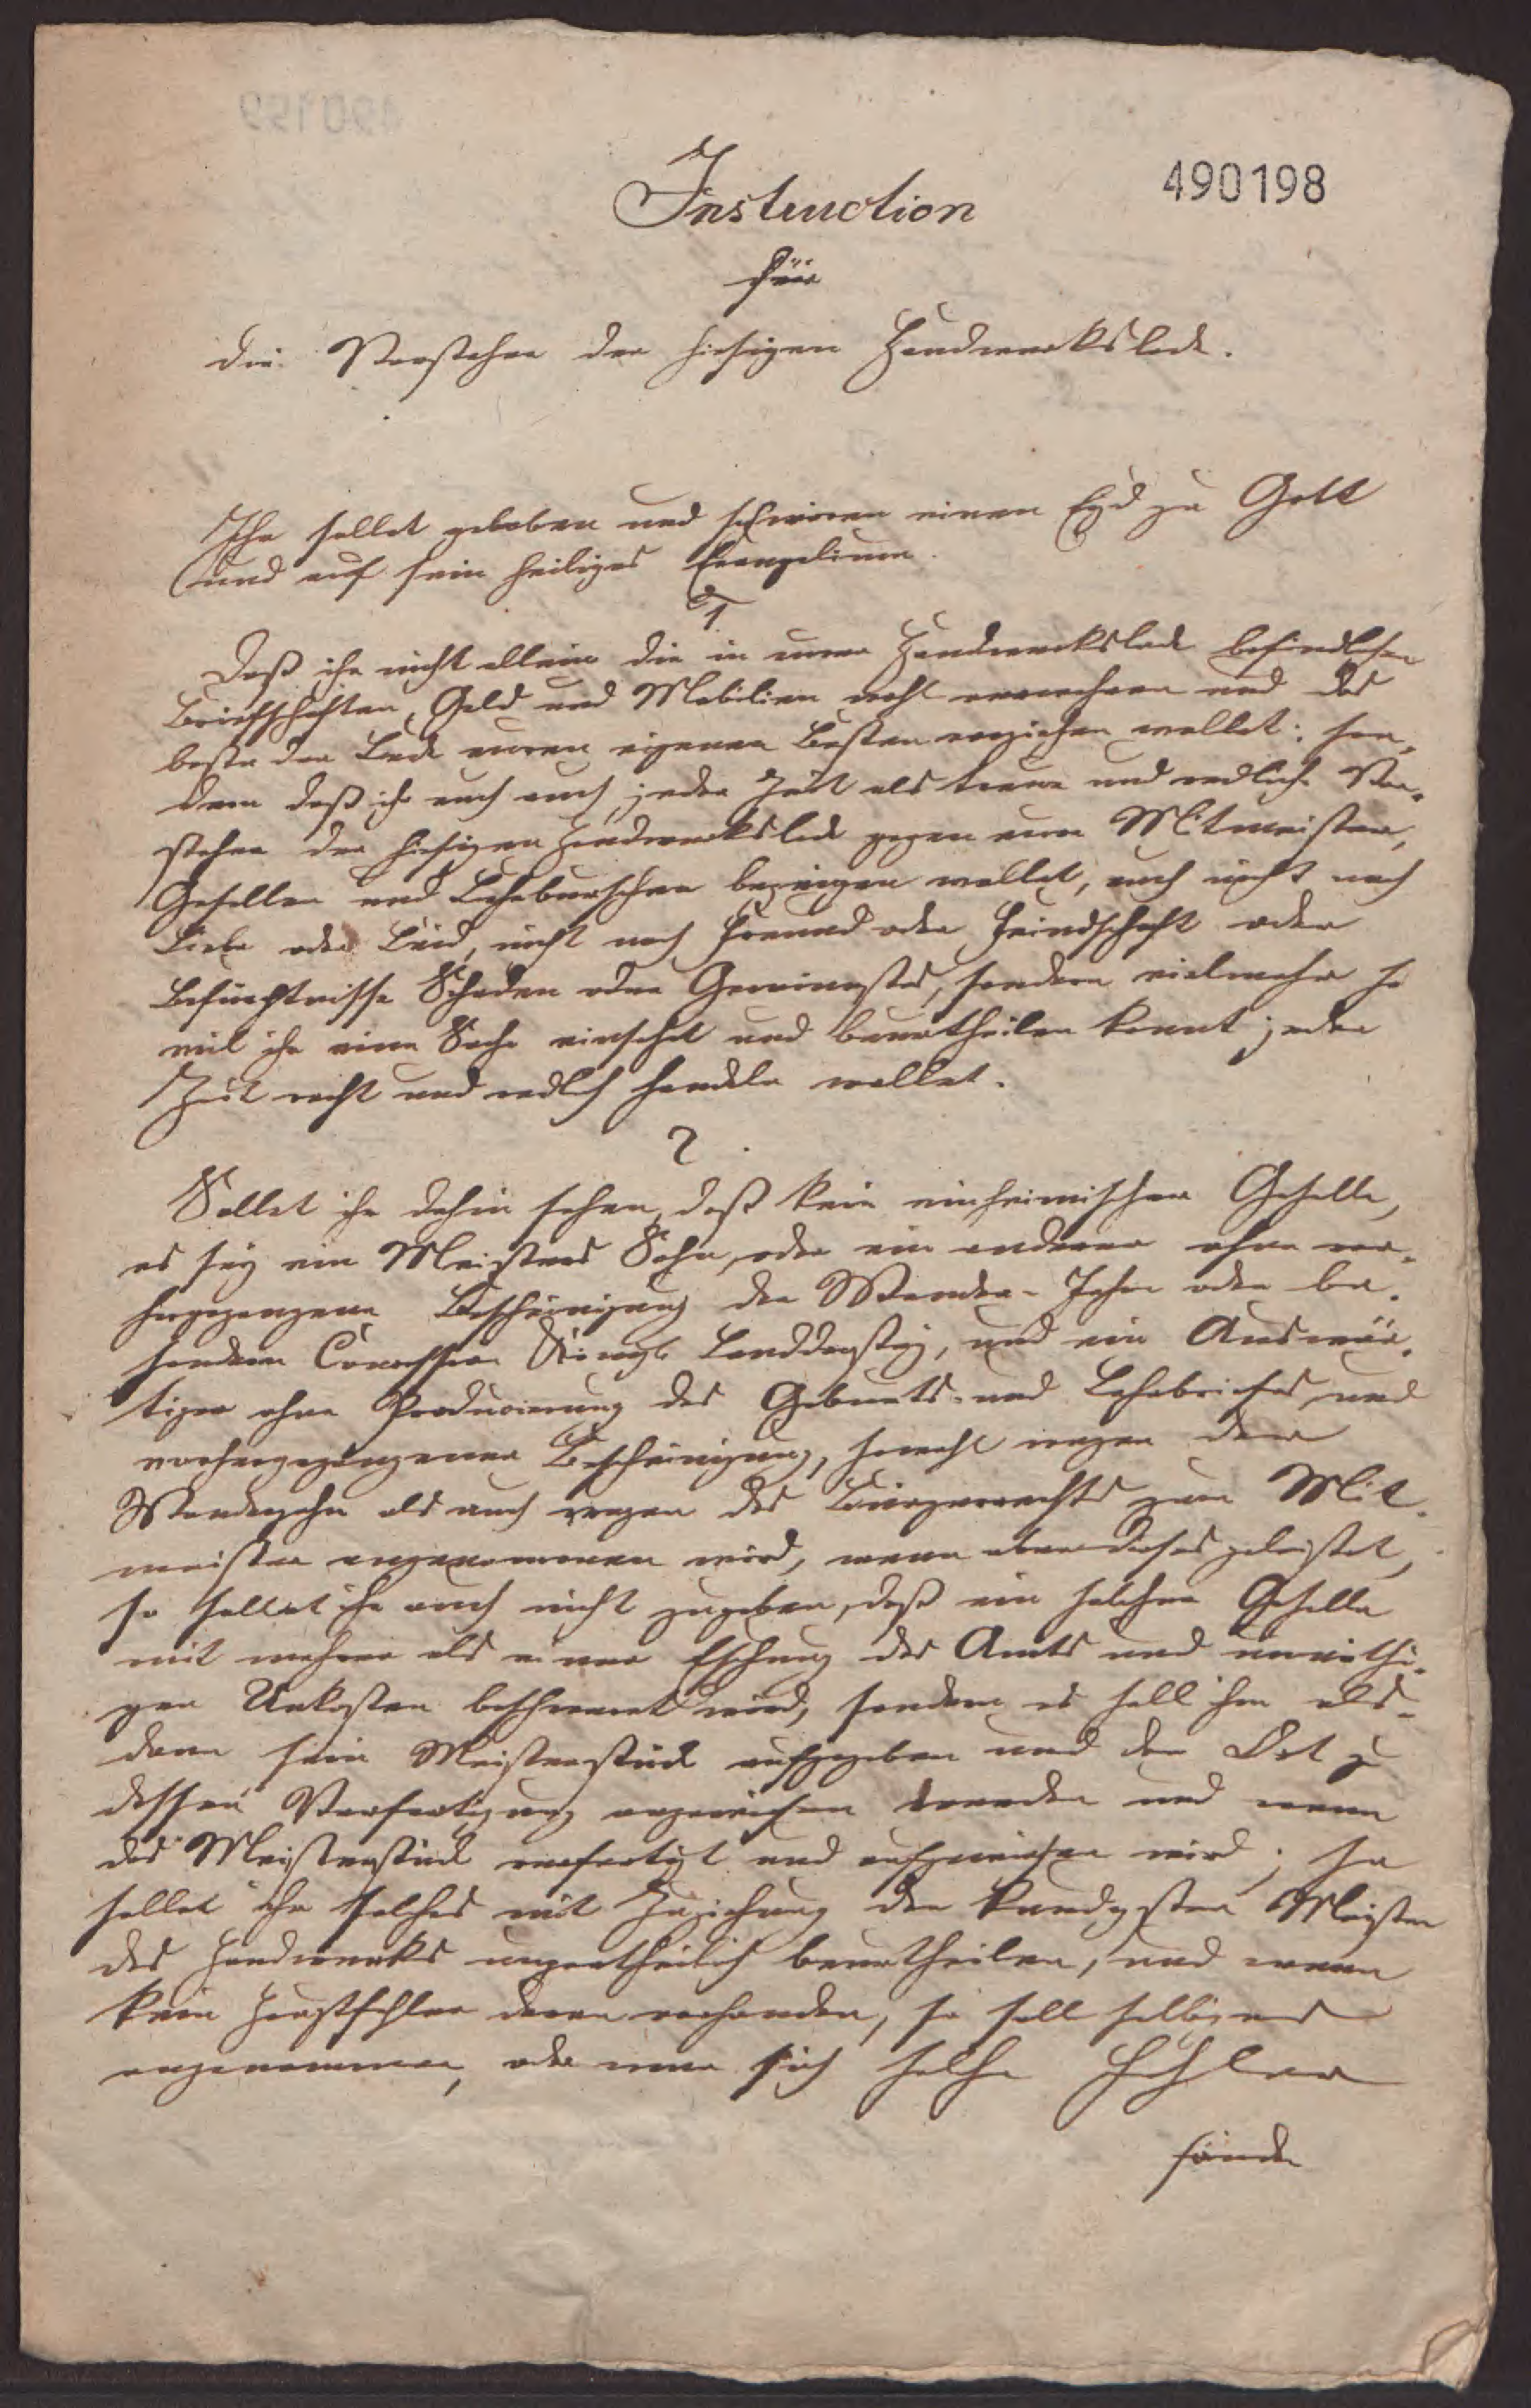 490198
Instruction
für
die Vorsteher der hiesigen Handwerkslade.
Ihr sollet geloben und schwören einen Eyd zu Gott
und auf sein heiliges Evangelium.
1
Daß ihr nicht allein die in eurer Handwerkslade befindlichen
Briefschaften, Geld und Mobilien wohl verwahren und das
beste der Lade eurem eigenen Besten vorziehen wollet; son-
dern daß ihr euch auch jeder Zeit als treue und redliche Vor-
steher der hiesigen Handwerkslade gegen eure Mitmeister,
Gesellen und Lehrburschen bezeigen wollet, auch nicht nach
Liebe oder Leid, nicht nach Freund oder Feindschaft oder
Befürchtnisse Schaden oder Gewinnstes, sondern vielmehr so
viel ihr eine Sache einsehet und beurtheilen könnt jeder
Zeit recht und redlich handeln wollet.
2
Sollet ihr dahin sehen, daß kein einheimischer Geselle,
es sey ein Meisters Sohn, oder ein anderer ohne vor-
hergegangene Bescheinigung der Wander-Jahre oder be-
sondern Concession Königl. Landdrostey, und ein Auswär-
tiger ohne Producirung des Geburts- und Lehrbriefes und
vorhergegangener Bescheinigung, sowohl wegen der
Wanderjahre als auch wegen des Bürgerrechts zum Mit-
meister angenommen wird, wenn aber dieses geleistet,
so sollet ihr auch nicht zugeben, daß ein solcher Geselle
mit mehrer als einer Eschung des Amts und unnöthi-
gen Unkosten beschweret wird, sondern es soll ihm als-
dann sein Meisterstück aufgegeben und der Ort zu
dessen Verfertigung angewiesen werden und wenn
das Meisterstück verfertigt und aufgewiesen wird; so
sollet ihr solches mit Zuziehung der kundigsten Meister
des Handwerks unpartheilich beurtheilen, und wenn
kein Hauptfehler daran vorhanden, so soll selbiges
angenommen, oder wenn sich solche Fehler
fände